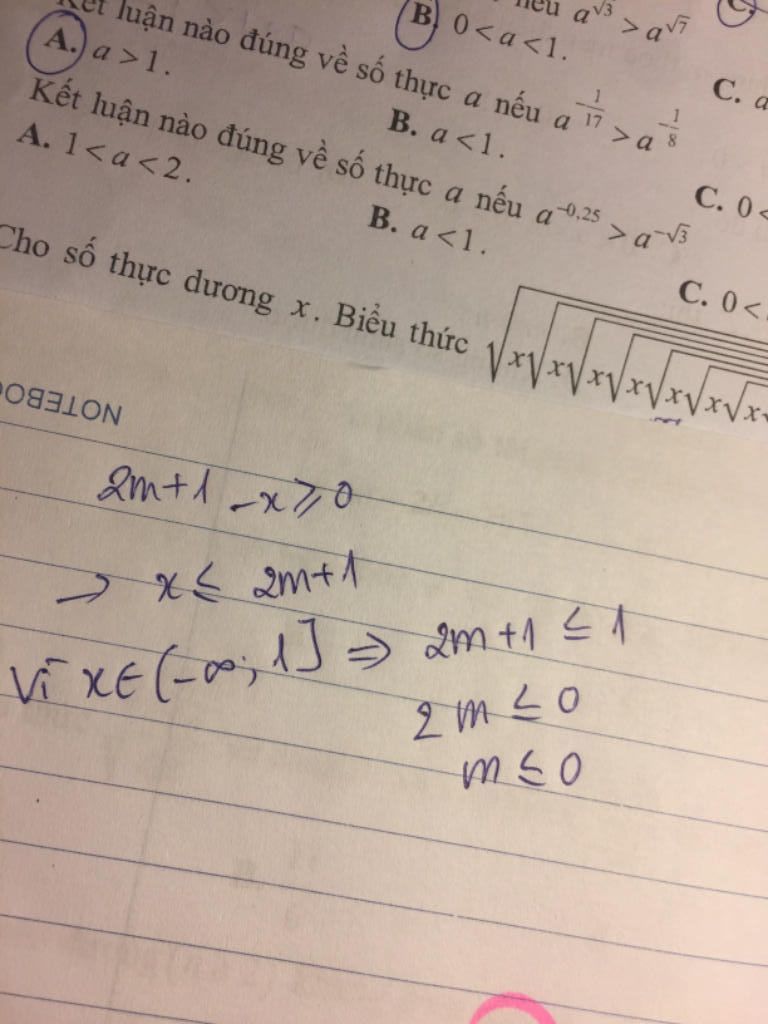 nếu a^{√3} > a^{√7}
B. 0 < a < 1.
C.
Kết luận nào đúng về số thực a nếu a^{-1/17} > a^{-1/8}
A. a > 1.
B. a < 1.
C.
Kết luận nào đúng về số thực a nếu a^{-0,25} > a^{-√3}
A. 1 < a < 2.
B. a < 1.
C. 0 <
C. 0 <
Cho số thực dương x. Biểu thức √x√x√x√x√x√x√x
NOTEBOO
2m+1 -x ⩾ 0
→ x ≤ 2m+1
Vì x∈(-∞; 1] ⇒ 2m+1 ≤ 1
2m ≤ 0
m ≤ 0